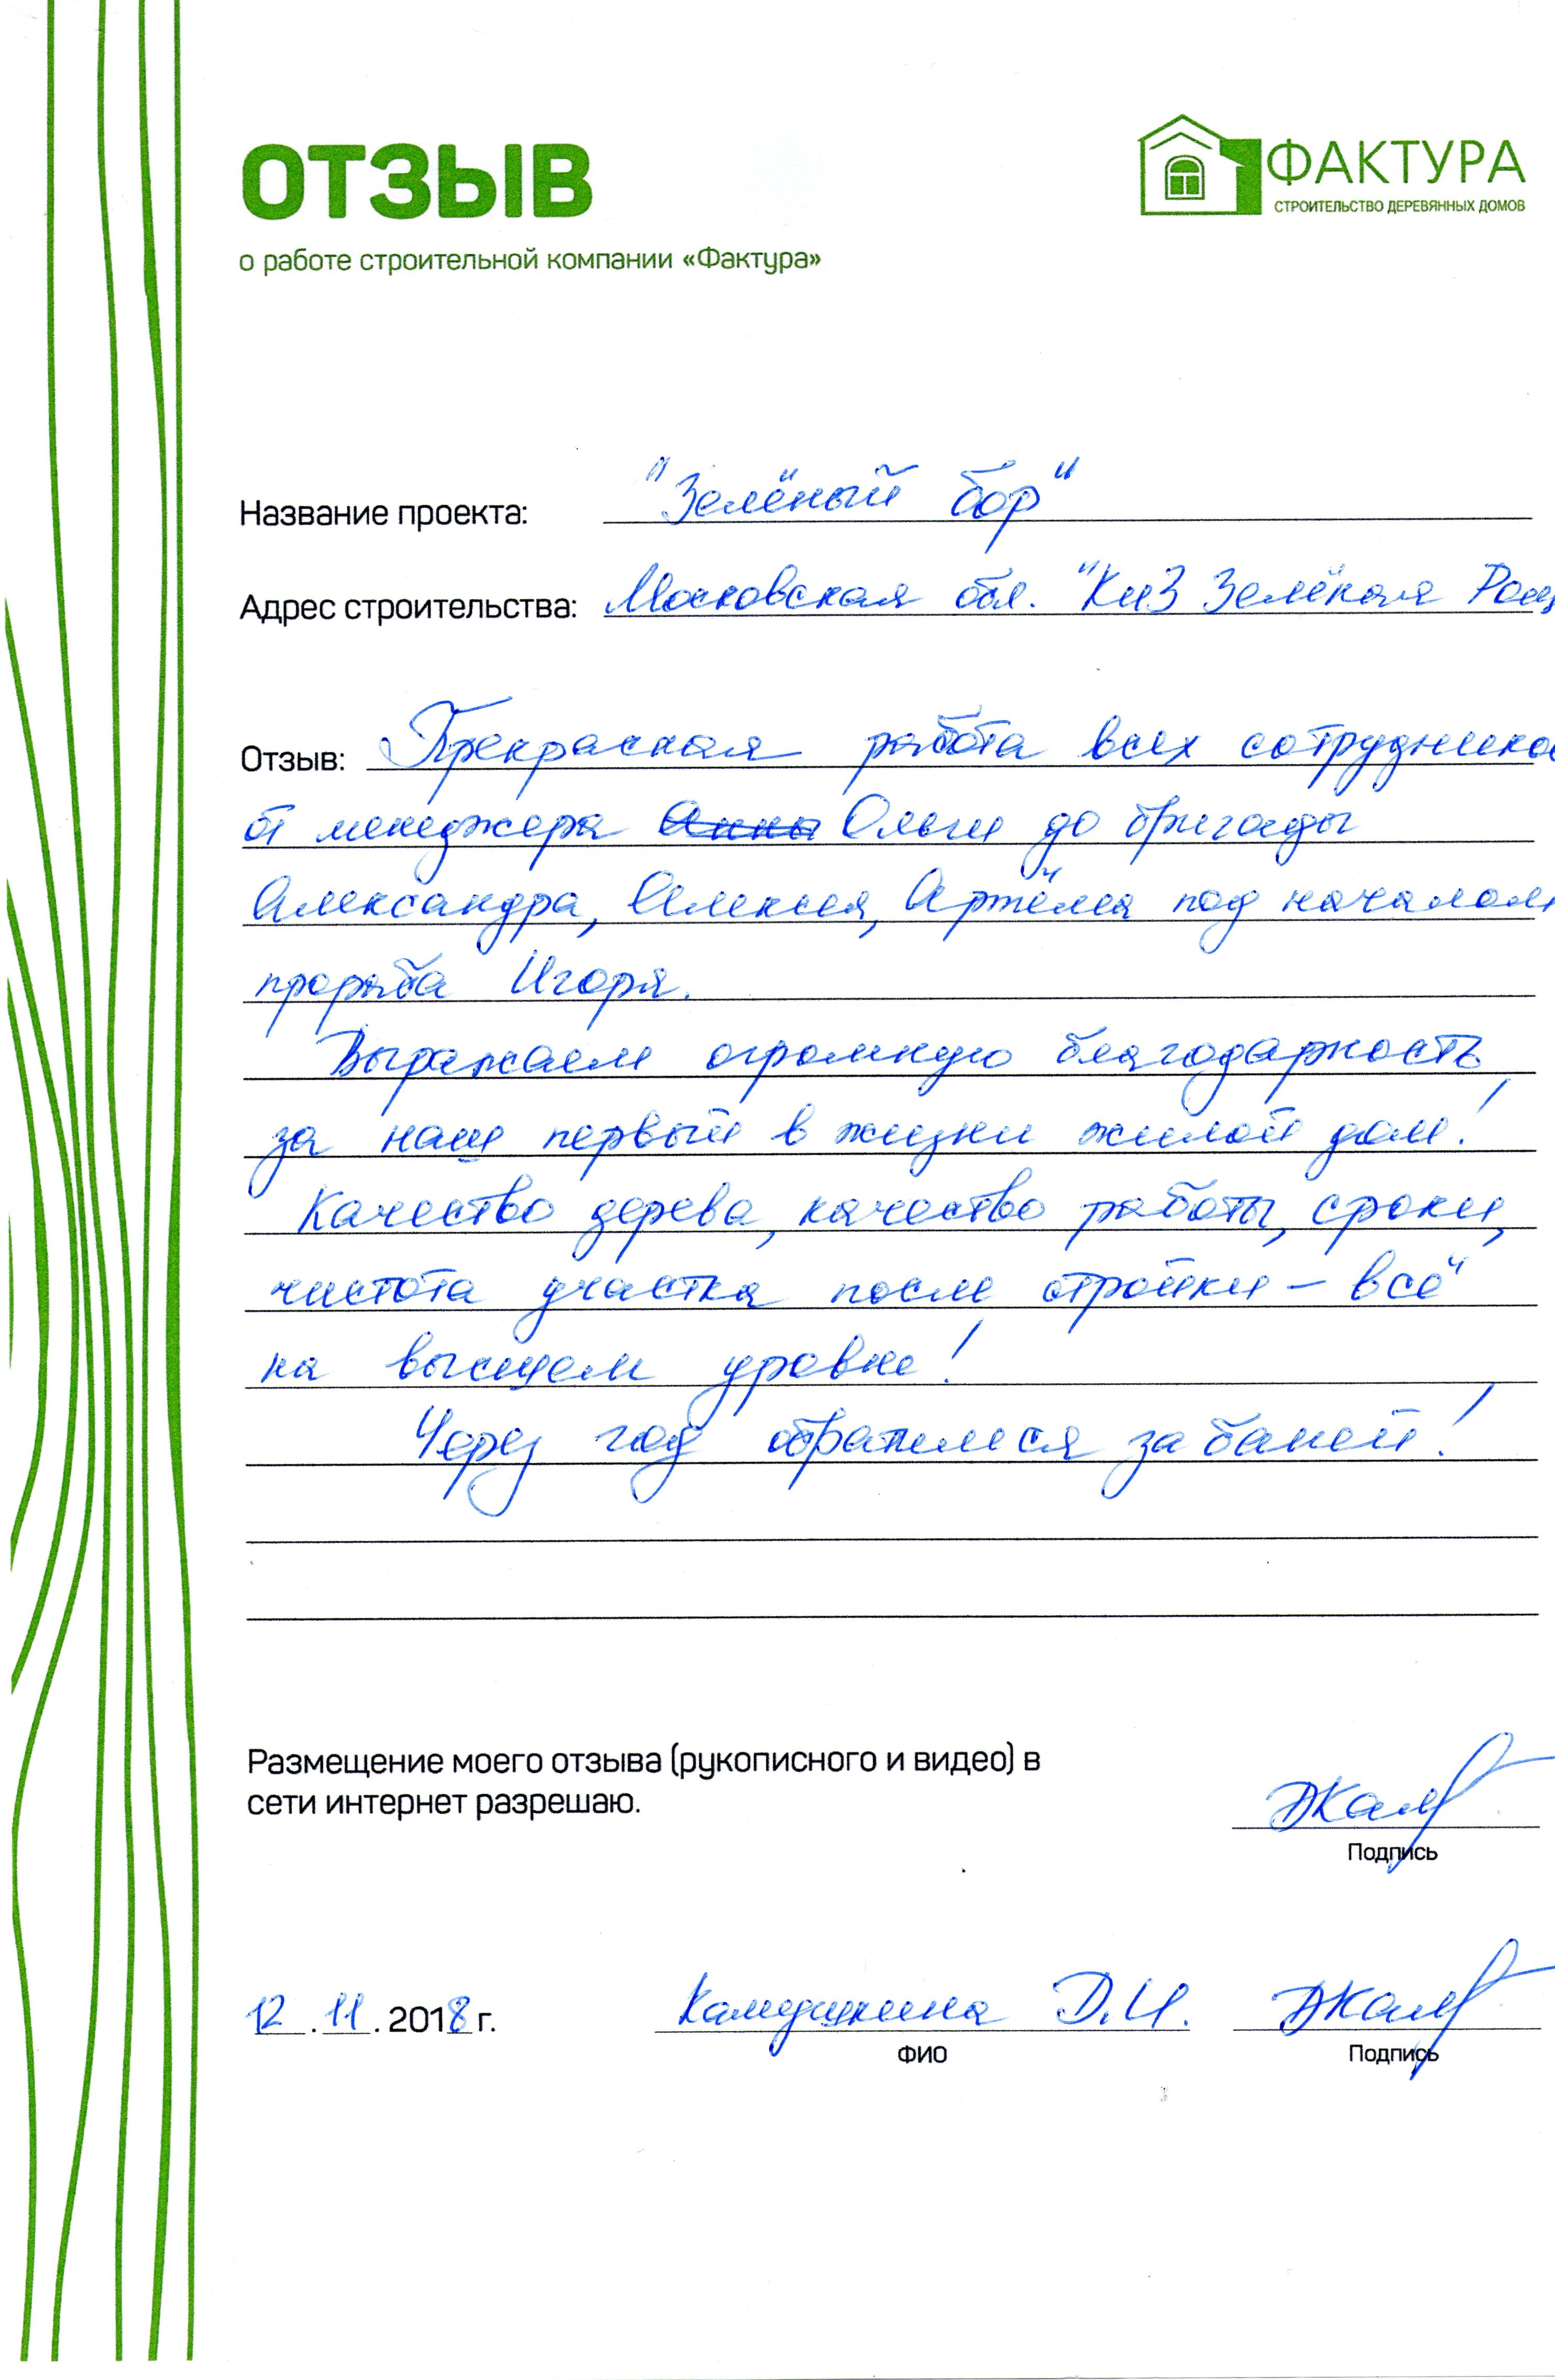 ОТЗЫВ
ФАКТУРА
СТРОИТЕЛЬСТВО ДЕРЕВЯННЫХ ДОМОВ
о работе строительной компании «Фактура»
Название проекта: "Зелёный бор"
Адрес строительства: Московская обл. "КиЗ Зелёная Рощ
Отзыв: Прекрасная работа всех сотруднико
от менеджера Анны Ольги до бригады
Александра, Алексея, Артёма под началом
прораба Игоря.
Выражаем огромную благодарность
за наш первый в жизни жилой дом!
Качество дерева, качество работы, сроки,
чистота участка после стройки – всё
на высшем уровне!
Через год обратимся за баней!
Размещение моего отзыва (рукописного и видео) в
сети интернет разрешаю.
Подпись
12.11.2018 г. Камушкина Д.И.
ФИО Подпись